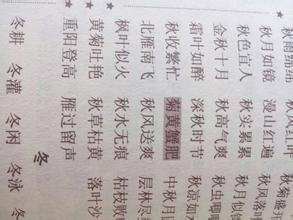 秋雨绵绵
秋月如镜 漫山红遍 秋风落
秋色宜人 秋实累累 秋月似
金秋十月 秋高气爽 秋虫唧
霜叶如醉 深秋时节 秋凉如
秋收繁忙 菊黄蟹肥 中秋月
北雁南飞 秋风送爽 层林尽
枫叶似火 秋水无痕 枯枝败
黄菊吐艳 秋草枯黄 落叶沙
重阳登高 雁过留声
冬
冬耕 冬灌 冬闲 冬泳 冬